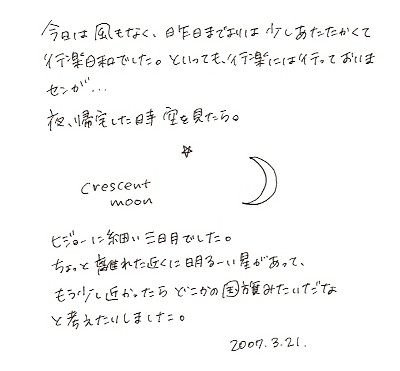 今日は風もなく、昨日までよりは少しあたたかくて
行楽日和でした。といっても、行楽には行っておいま
センが…
夜、帰宅した時空を見たら。
crescent
moon
ヒジョーに細い三日月でした。
ちょっと離れた近くに明るーい星があって、
もう少し近かったらどこかの国旗みたいだな
と考えたいしました。
2007.3.21.